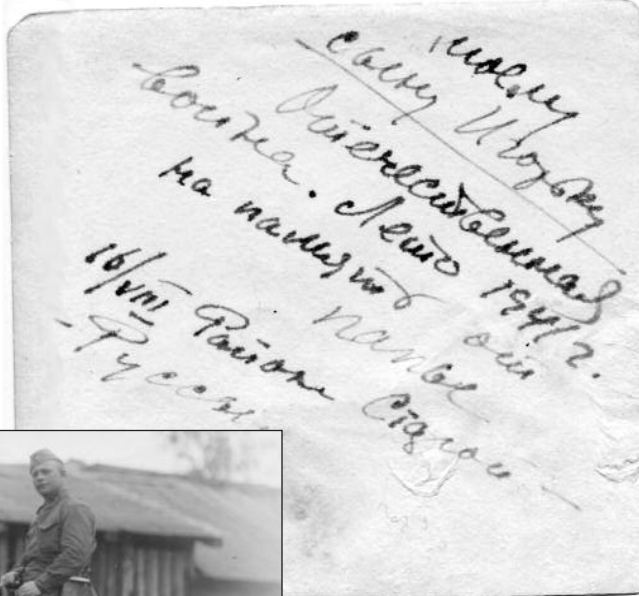 моему
сыну Игорьку
Отечественная
война. Лето 1941 г.
на память от
папы
16/VIII Район Старой-
-Руссы.